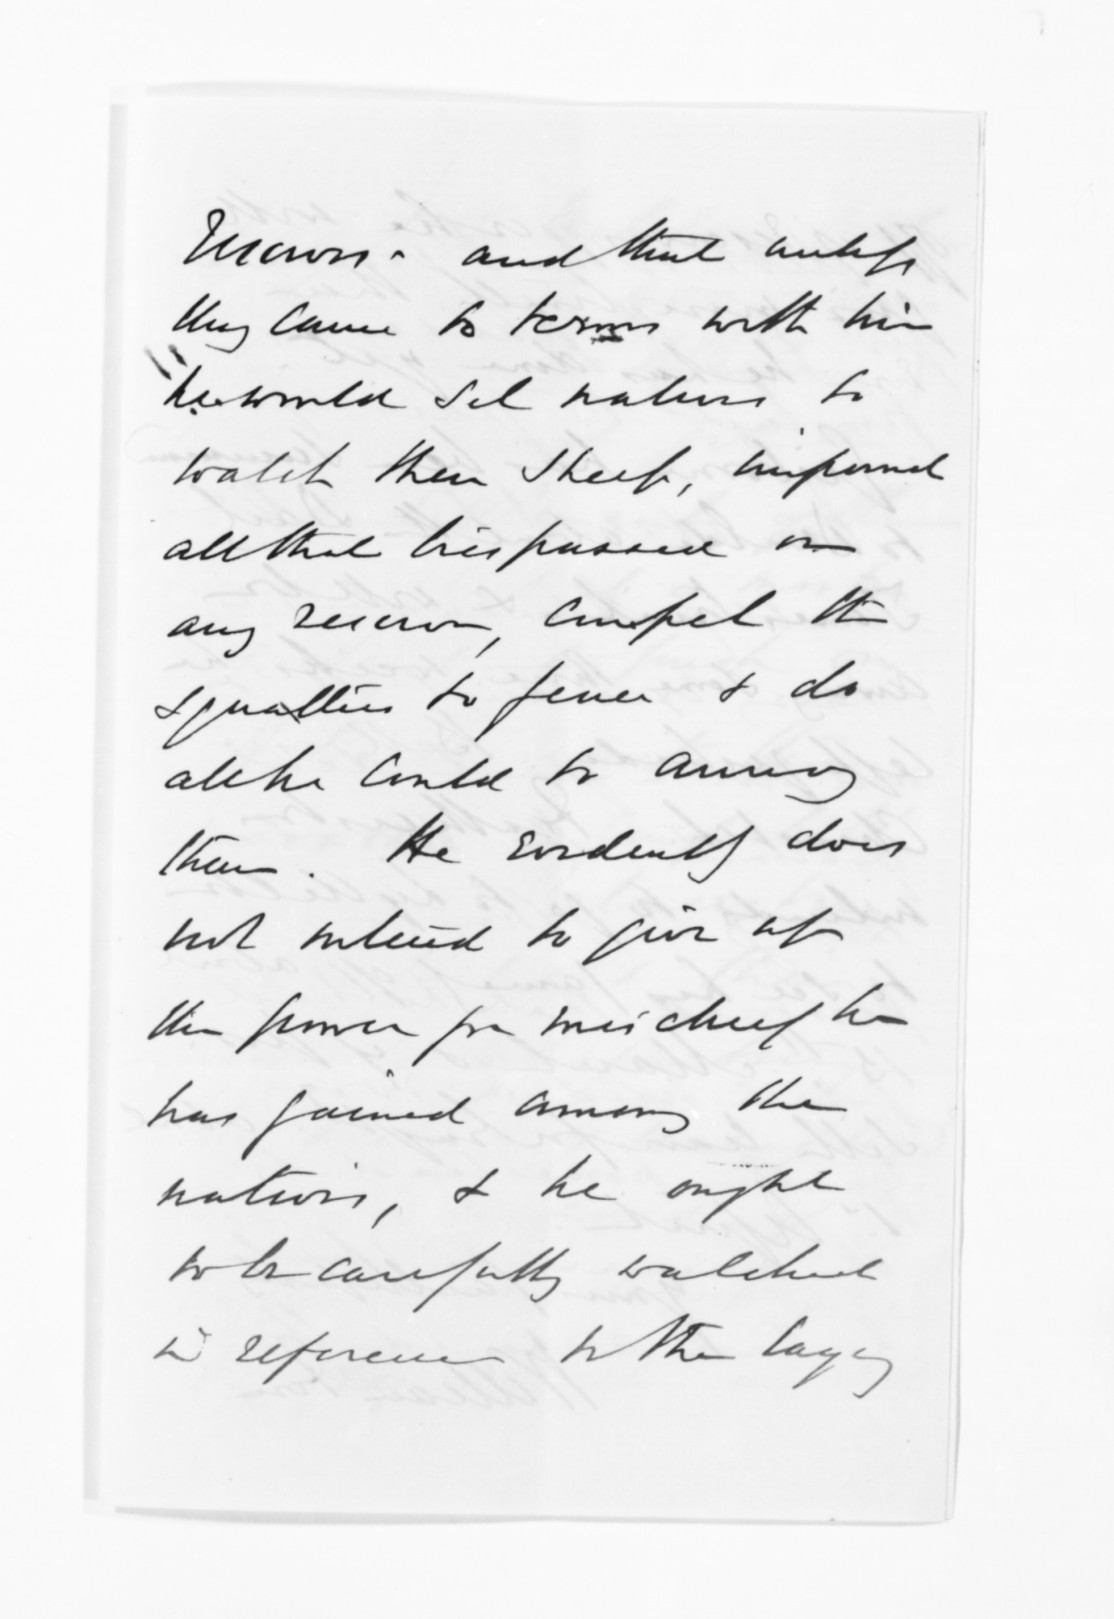 reserves - and that unless
they came to terms with him
he would set natives to
watch their sheep, impound
all that trespassed on
any reserve, compel the
squatters to fence & do
all he could to annoy
them. He evidently does
not intend to give up
the power for mischief he
has gained among the
natives, & he ought
to be carefully watched
in reference to the laying